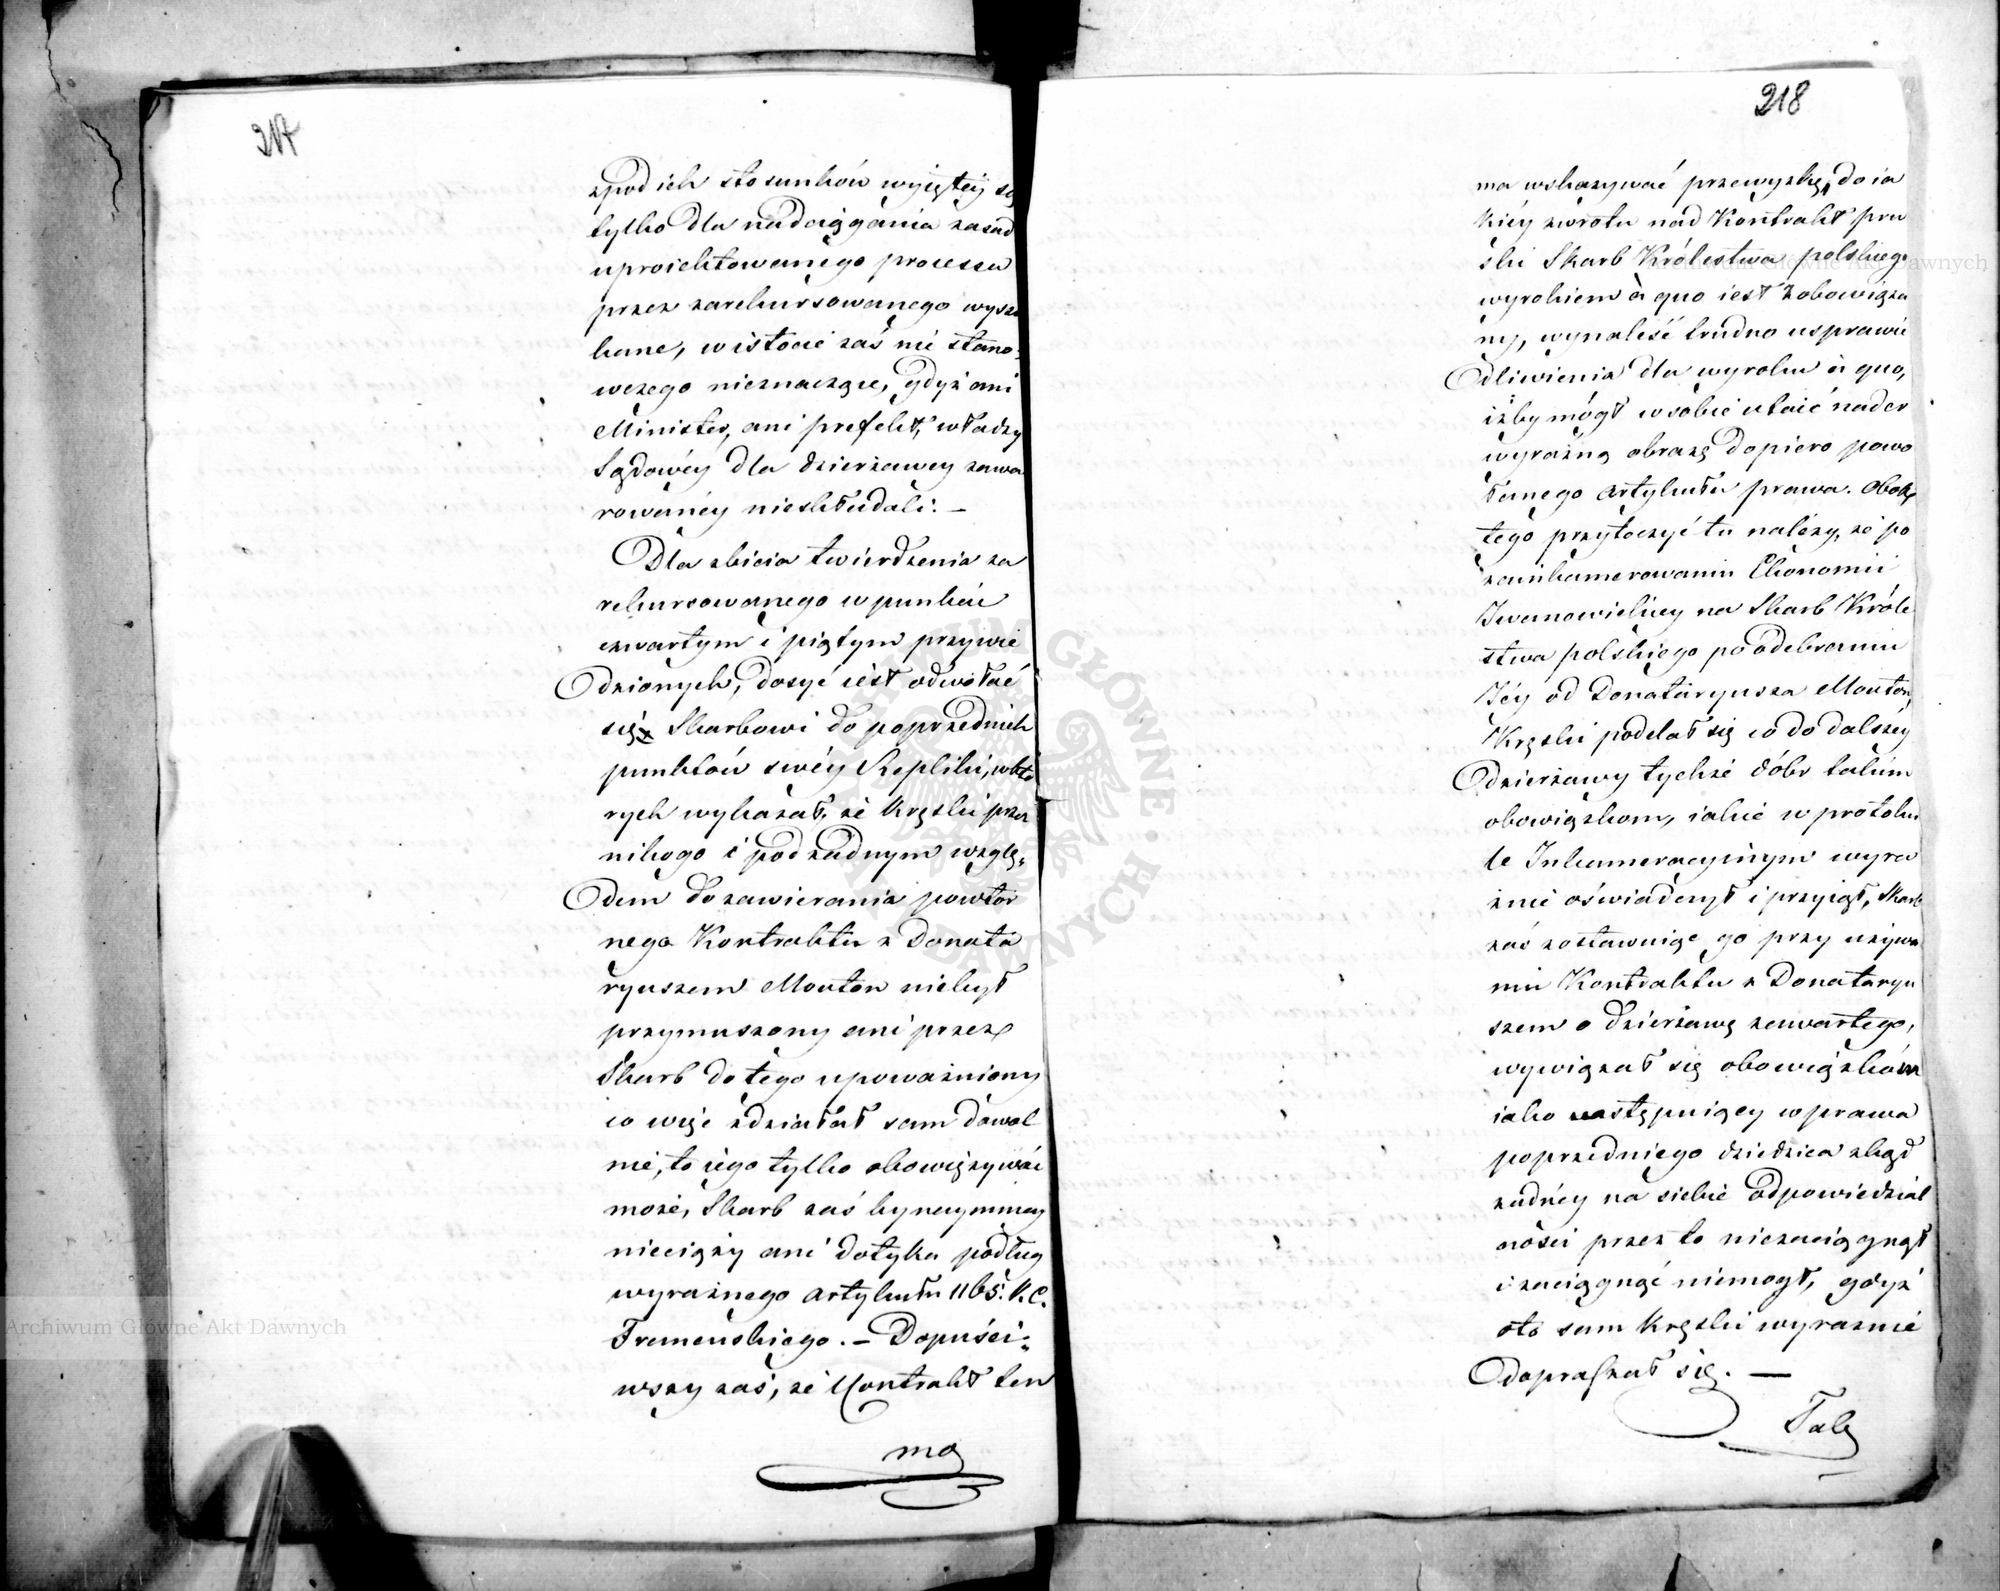 217
zpod ich stosunków wyiętéy są
tylko dla nadciągania zasad
uproiektowanego processu
przez zarekursowanego wysza
kane, w istocie zaś nic stano-
wczego nieznaczące, gdyż ani
Minister, ani prefekt, władzy
Sądowéy dla dzierżawcy zawa
rowanéy nieskładali. —
Dla zbicia twierdzenia za
rekursowanego w punkcie
czwartym i piątym przywie
dzionych, dosyć iest odwołać
się Skarbowi do poprzednich
punktów swéy Repliki, w któ
rych wykazał, że Kręski przez
nikogo i pod żadnym wzglę-
dem do zawierania powtór
nego Kontraktu z Donata
ryuszem Mouton niebył
przymuszony ani przez
Skarb do tego upoważniony
co więc zdziałał sam dowol
nie, to iego tylko obowięzywać
może, Skarb zaś bynaymniey
niecięży ani dotyka podług
wyraźnego artykułu 1165. K. C.
Francuskiego. — Dopuści-
wszy zaś, że Kontrakt ten
ma
218
ma wskazywać przewyżkę, do ia
kiéy zwrotu nad Kontrakt pru
ski Skarb Królestwa polskiego
wyrokiem à quo iest zobowiąza
ny, wynaleść trudno usprawie
dliwienia dla wyroku à quo,
iżby mógł w sobie utaić nader
wyraźną obrazę dopiero powo
łanego artykułu prawa. Obok
tego przytoczyć tu należy, że po
zainkamerowaniu Ekonomii
Iwanowickiey na Skarb Króle
stwa polskiego po odebraniu
Jéy od Donataryusza Mouton,
Kręski poddał się co do dalszéy
dzierżawy tychże dóbr takim
obowiązkom, iakie w protokul
le Inkameracyinym wyra
źnie oświadczył i przyiął, Skarb
zaś zostawuiąc go przy używa
niu Kontraktu z Donataryu
szem o dzierżawę zawartego,
wywiązał się obowiązków
iako wstępuiący w prawa
poprzedniego dziedzica zkąd
żadnéy na siebie odpowiedzial
ności przez to niezaciągnął
i zaciągnąć niemógł, gdyż
oto sam Kręski wyraźnie
dopraszał się. —
Taką
Archiwum Główne Akt Dawnych
Archiwum Główne Akt Dawnych
ARCHIWUM GŁÓWNE AKT DAWNYCH